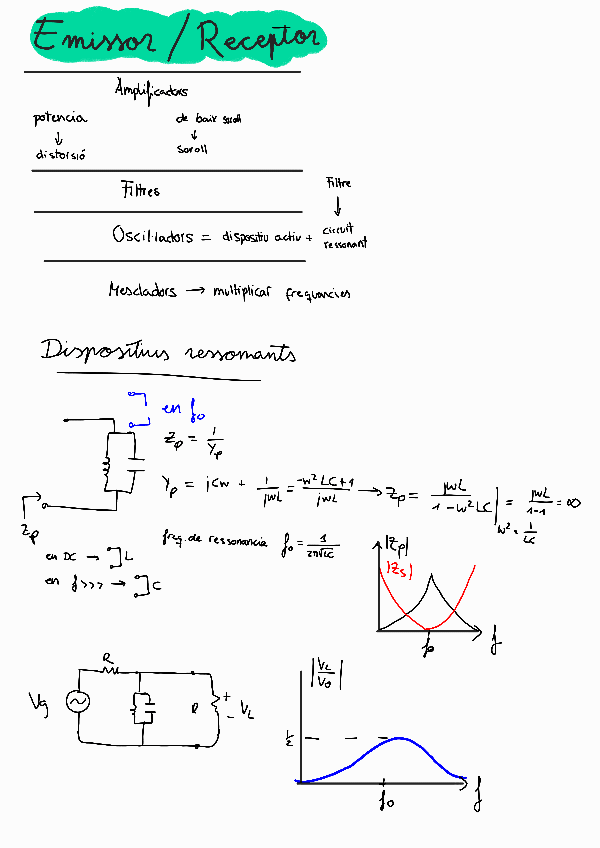 Emissor / Receptor
Amplificadors
potencia de baix soroll
↓ ↓
distorsió soroll
Filtres
Filtre
↓
Oscil·ladors = dispositiu actiu + circuit ressonant
Mescladors → multiplicar frequencies
Dispositius ressonants
en f₀
Zp = 1/Yp
Yp = jCw + 1/jwL = -w² LC+1/jwL → Zp = jwL/1-w²LC | w² = 1/LC = jwL/1-1 = ∞
Zp
freq. de ressonancia f₀ = 1/2π√LC
en DC → L
en f>>> → C
|Zp|
|Zs|
f₀ f
R
Vg R + - VL
|VL/V0|
1/2
f₀ f